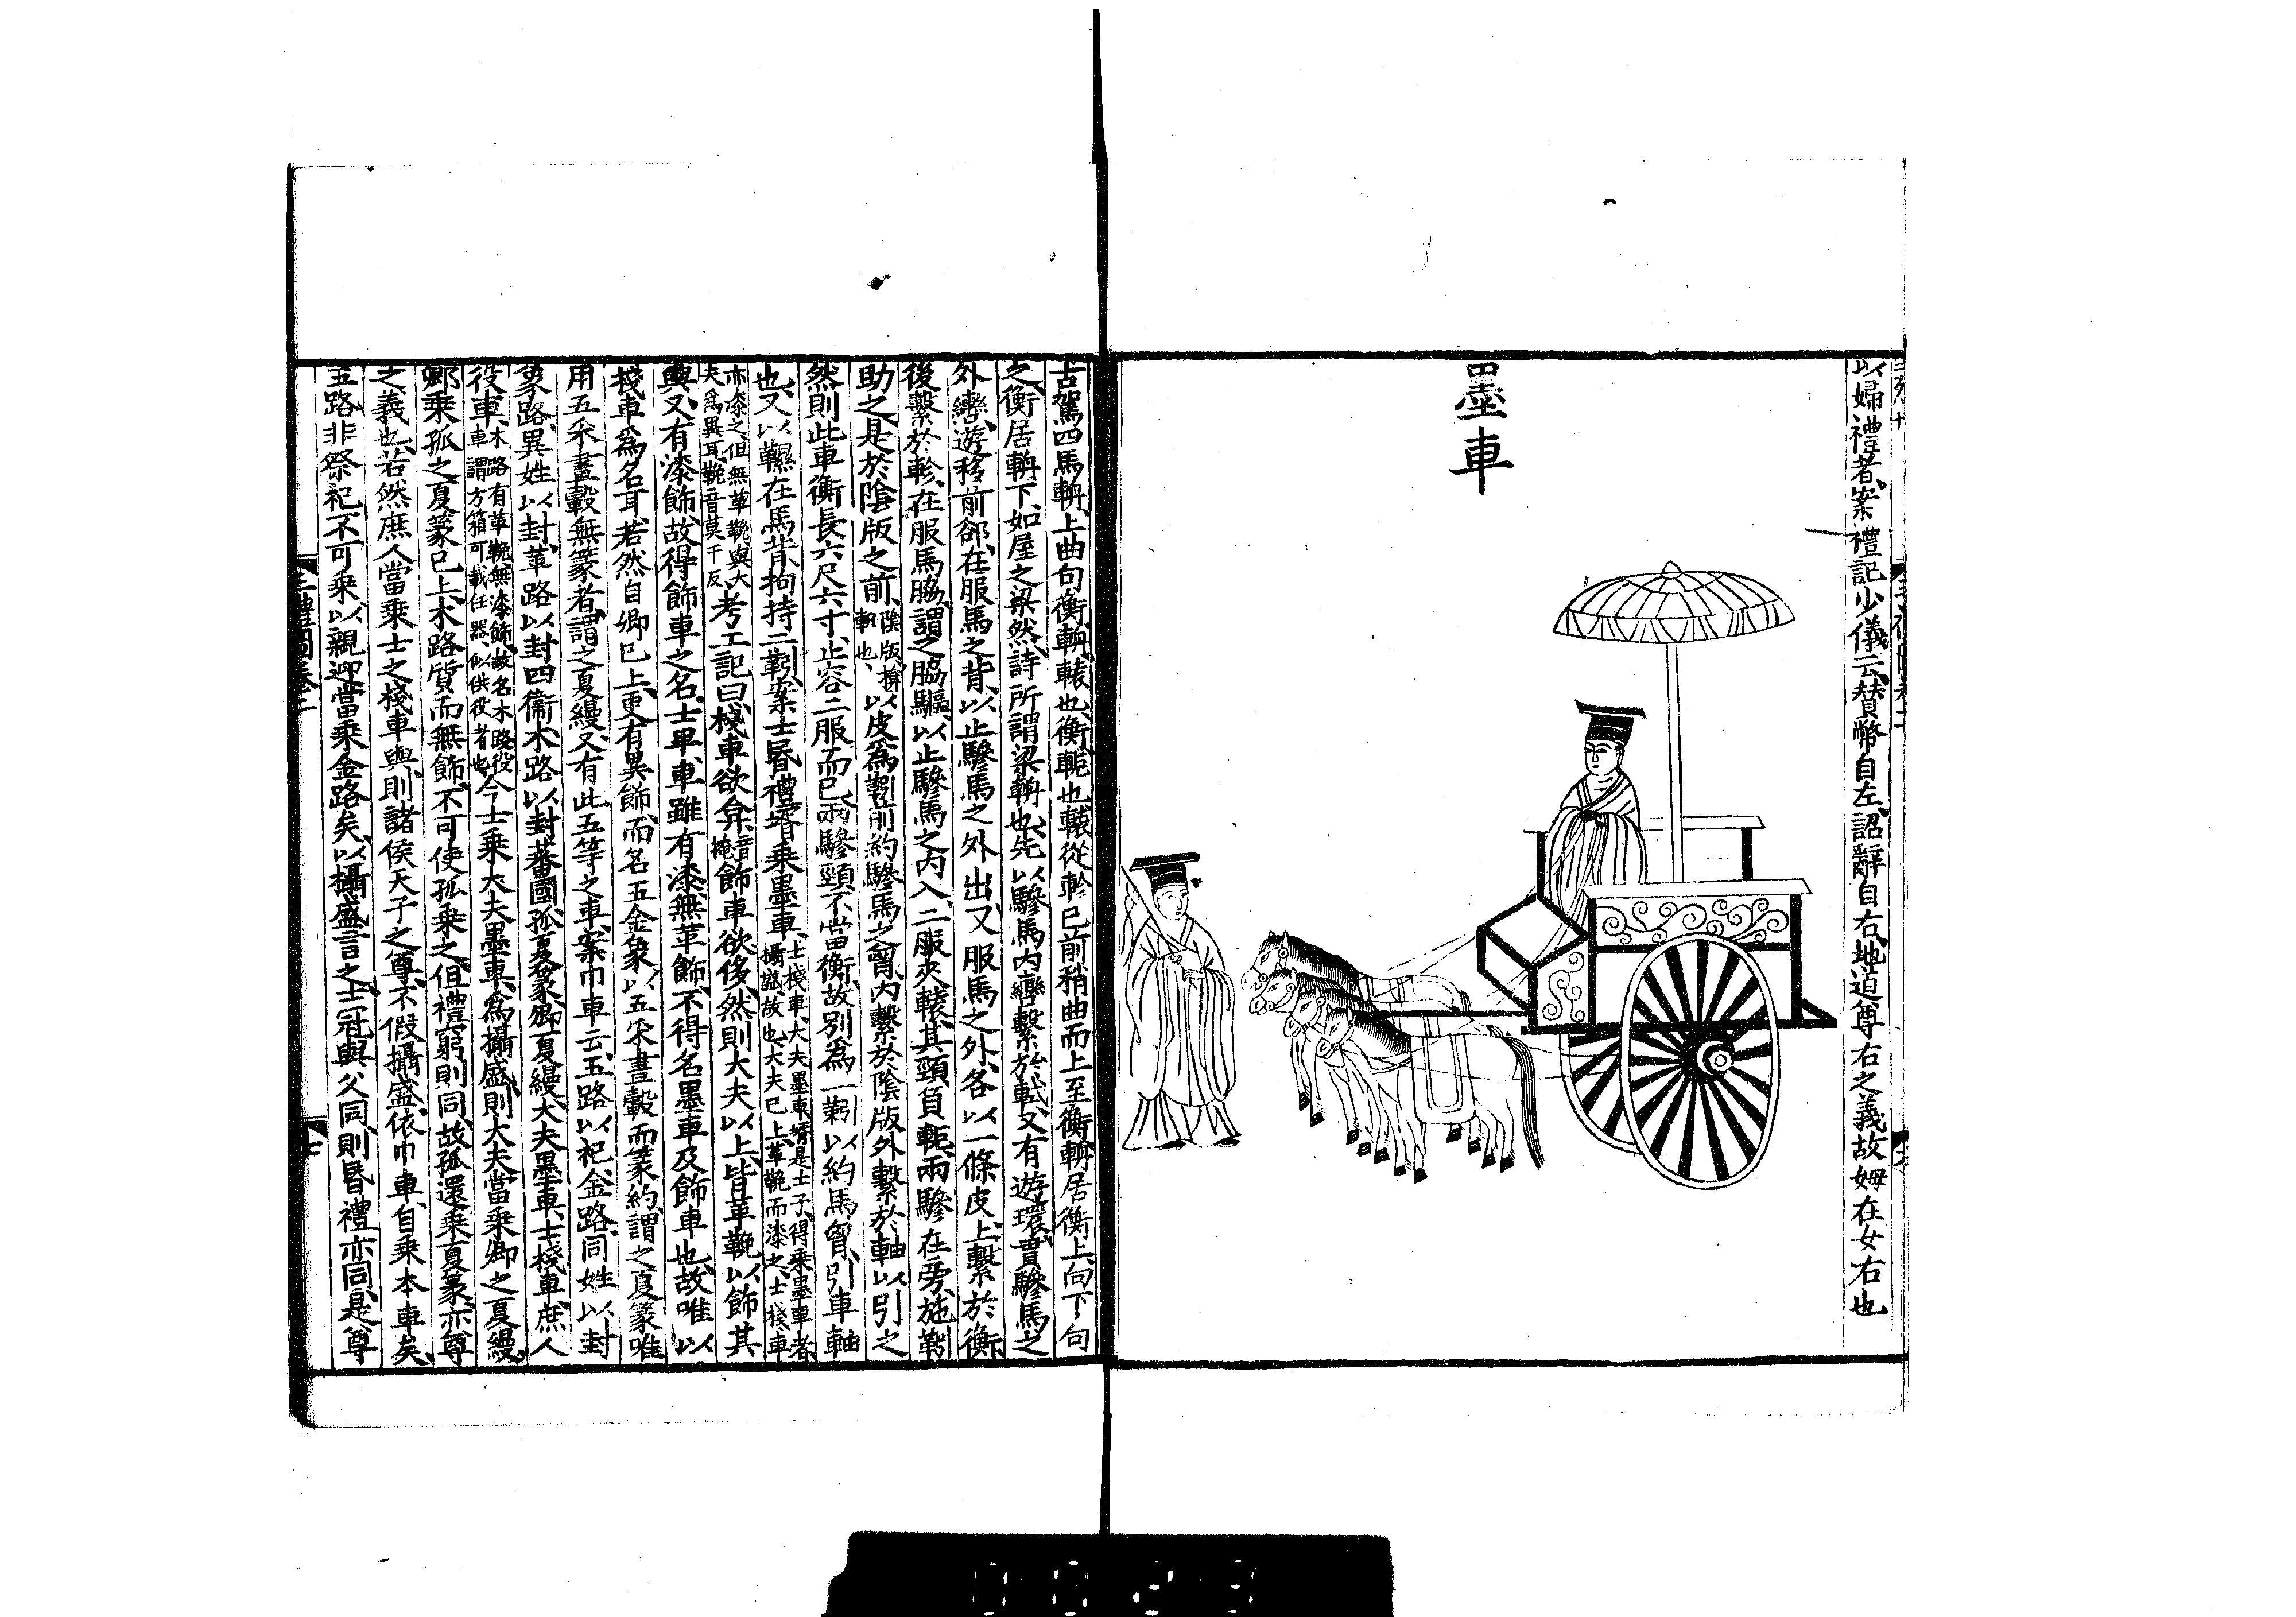 以婦禮者案禮記少儀云賛幣自左詔辭自右地道尊右之義故姆在女右也
墨車
古駕四馬輈上曲句衡輈轅也衡軛也轅從軫已前稍曲而上至衡輈居衡上向下句
之衡居輈下如屋之梁然詩所謂梁輈也先以驂馬內轡繫於軾又有遊環貫驂馬之
外轡遊移前郤在服馬之背以止驂馬之外出又服馬之外各以一條皮上繫於衡
後繫於軫在服馬脇謂之脇驅以止驂馬之內入二服夾轅其頸負軛兩驂在旁施靷
助之是於隂版之前隂版揜軓也以皮為靷前約驂馬之胷內繫於隂版外繫於軸以引之
然則此車衡長六尺六寸止容二服而已兩驂頸不當衡故別為一靷以約馬胷引車軸
也又以䩞在馬背拘持二靷案士昏禮壻乗墨車士棧車大夫墨車壻是士子得乗墨車者攝盛故也大夫已上革鞔而漆之士棧車
亦漆之但無革鞔與大夫為異耳鞔音莫干反考工記曰棧車欲弇音掩飾車欲侈然則大夫以上皆革鞔以飾其
輿又有漆飾故得飾車之名士卑車雖有漆無革飾不得名墨車及飾車也故唯以
棧車為名耳若然自卿已上更有異飾而名五金象以五采畫轂而篆約謂之夏篆唯
用五采畫轂無篆者謂之夏縵又有此五等之車案巾車云五路以祀金路同姓以封
象路異姓以封革路以封四衞木路以封蕃國孤夏篆卿夏縵大夫墨車士棧車庶人
役車木路有革鞔無漆飾故名木路役車謂方箱可載任器以供役者也今士乗大夫墨車為攝盛則大夫當乗卿之夏縵
卿乗孤之夏篆已上木路質而無飾不可使孤乗之但禮窮則同故孤還乗夏篆亦尊
之義也若然庶人當乗士之棧車與則諸侯天子之尊不假攝盛依巾車自乗本車矣
玉路非祭祀不可乗以親迎當乗金路矣以攝盛言之士社與父同則昏禮亦同是尊
三禮圖卷二
七